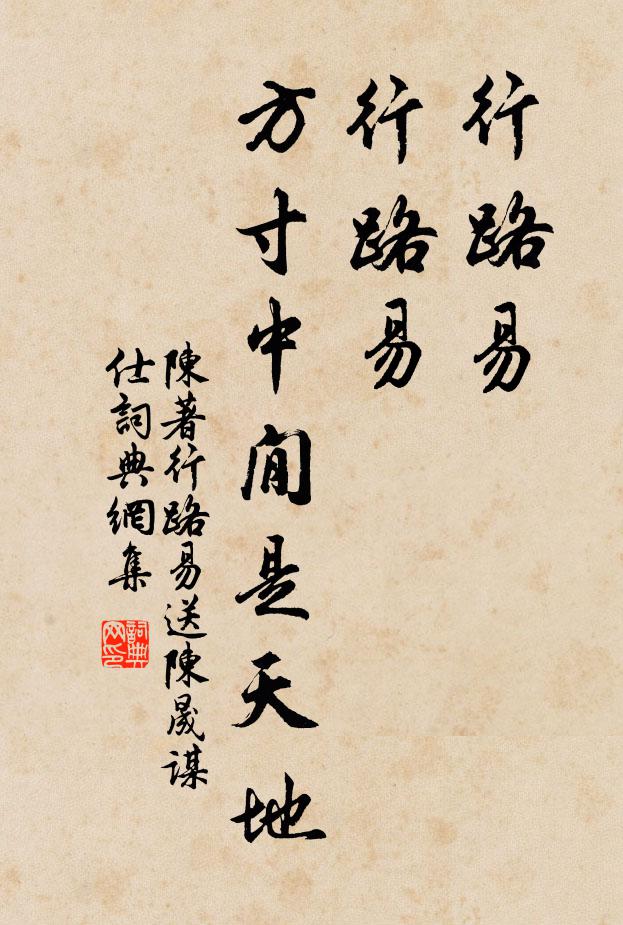 行路易
行路易
方寸中間是天地
陳著行路易送陳晟謀
仕詞典網集
詞典
网印